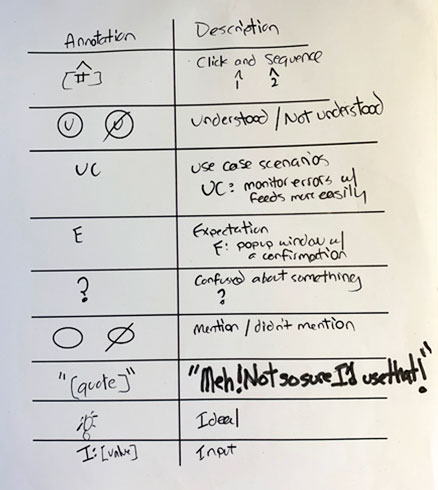 Annotation Description
[#] Click and Sequence
1 2
U U Understood / Not understood
UC use case scenarios
UC: monitor errors w/
feeds more easily
E Expectation
E: popup window w/
a confirmation
? Confused about something
?
Mention / didn't mention
"[quote]" "Meh! Not so sure I'd use that!"
Idea!
I:[value] Input